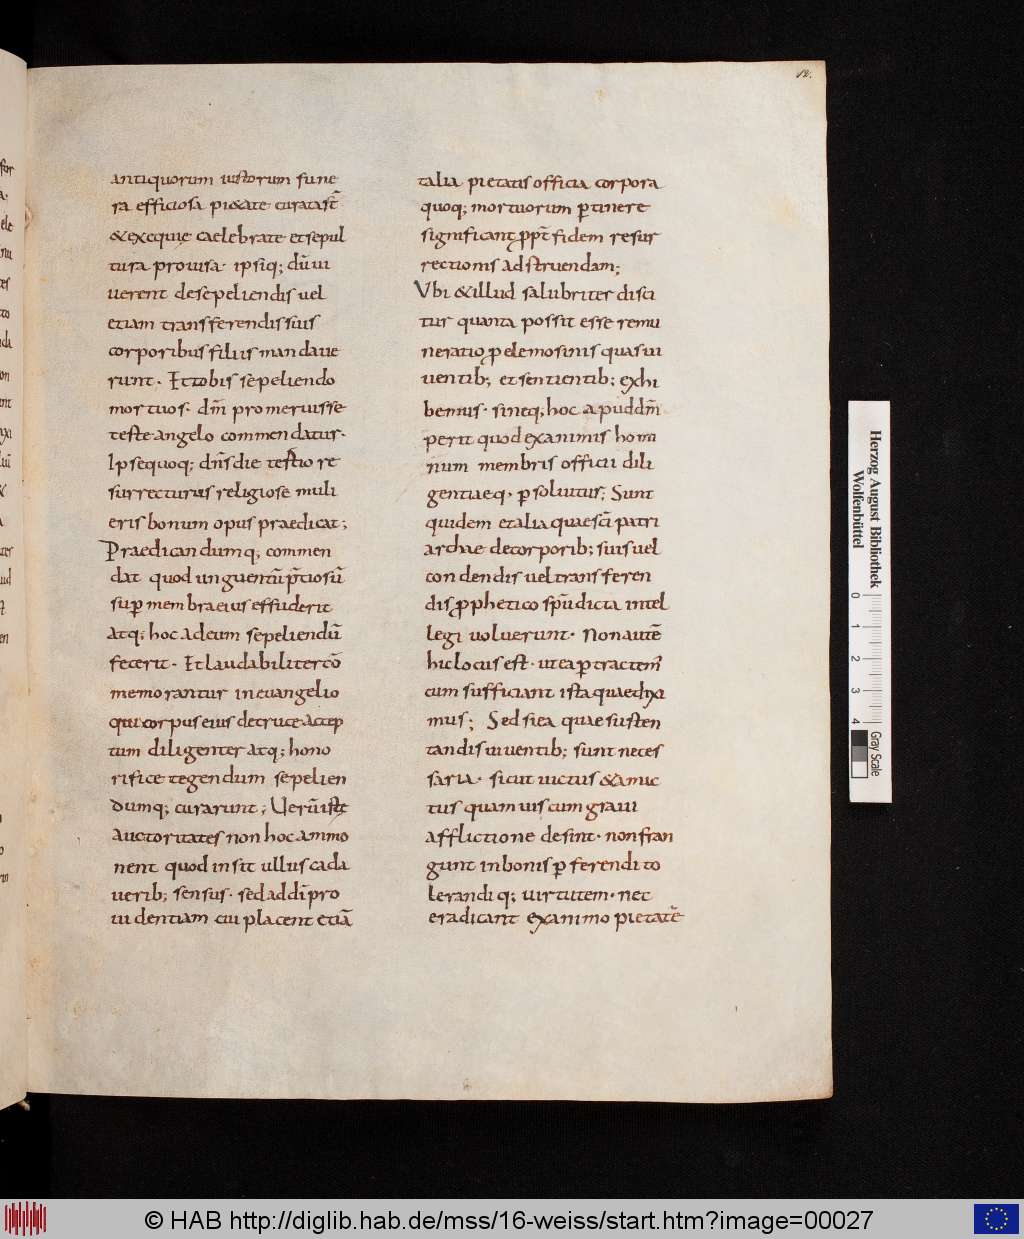 12.
antiquorum iustorum fune
ra efficiosa pi&ate curatas̄t
&exequie caelebrate etsepul
tura prouisa· ipsiq; dū ui
uerent desepeliendis uel
etiam transferendis suis
corporibus filiis mandaue
runt· Ettobis sepeliendo
mortuos· dm̄ promeruisse
teste angelo commendatur·
Ipsequoq; dn̄s die tertio re
surrecturus religiose muli
eris bonum opus praedicat;
Praedicandumq; commen
dat quod unguentū p̄tiosū
suꝑ membraeius effuderit
Atq; hoc adeum sepeliendū
fecerit· Etlaudabiliter cō
memorantur ineuangelio
qui corpus eius decruce accep
tum diligenter atq; hono
rifice tegendum sepelien
dumq; curarunt; Uerū iste
auctoritates non hoc ammo
nent quod insit ullus cada
uerib; sensus· sed addī pro
uidentiam cui placent etiā
talia pietatis officia corpora
quoq; mortuorum ꝑtinere
significant ꝓpt̄ fidem resur
rectionis adstruendam;
Ubi &illud salubriter disci
tur quanta possit esse remu
neratio ꝓ elemosinis quas ui
uentib; et sentientib; exhi
bemus· sineq; hoc apud dm̄
perit quod exanimis homi
num membris officii dili
gentiaeq· ꝑsoluitur; Sunt
quidem etalia quae sc̄i patri
archae decorporib; suis uel
condendis uel transferen
dis ꝓphetico sp̄u dicta intel
legi uoluerunt· Non autē
hic locus est· ut ea ꝑtractem
cum sufficiant ista quae dixi
mus; Sed si ea quae susten
tandis uiuentib; sunt neces
saria· sicut uictus &amic
tus quam uis cum graui
afflictione desint· non fran
gunt inbonis ꝑferendi to
lerandi q; uirtutem· nec
eradicant exanimo pietatē
Herzog August Bibliothek
Wolfenbüttel
0 1 2 3 4
Gray Scale
© HAB http://diglib.hab.de/mss/16-weiss/start.htm?image=00027